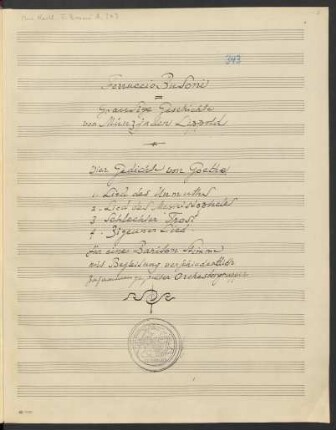 343
Ferruccio Busoni
Grausige Geschichte
vom Münzjuden Lippold
Vier Gedichte von Goethe
1. Lied des Unmuths
2. Lied des Mephistopheles
3 Schlechter Trost
4. Zigeuner Lied
für eine Bariton Stimme
mit Begleitung verschiedentlich
Orchestergruppe